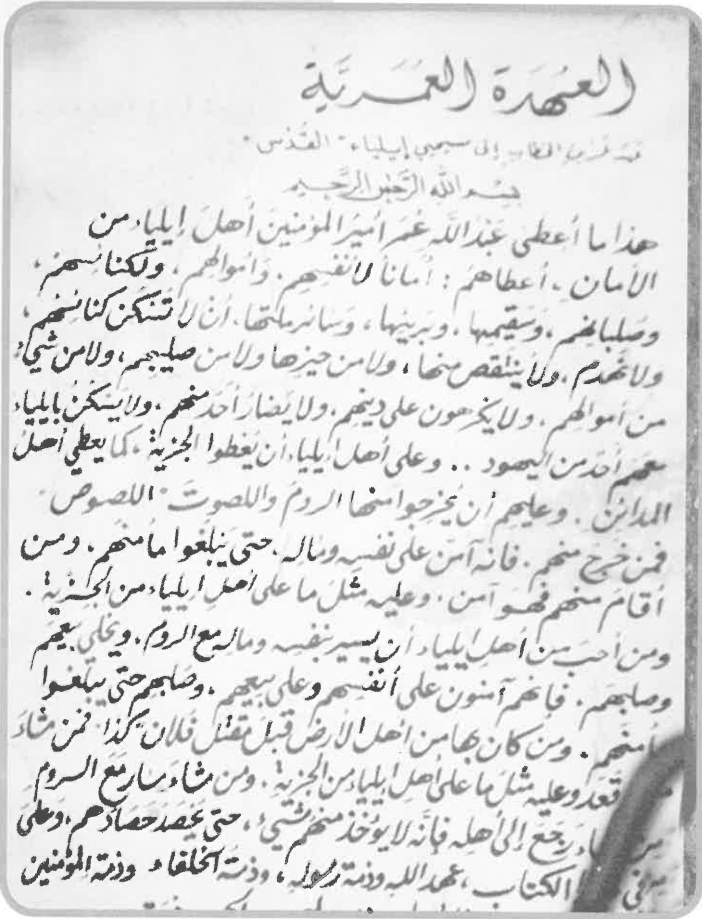 العهدة العمرية
إلى مسيحيي إيلياء "القدس"
بسم الله الرحمن الرحيم
هذا ما أعطى عبد الله عمر أمير المؤمنين أهل إيلياء من
الأمان . أعطاهم : أماناً لأنفسهم . وأموالهم ، ولكنائسهم ،
وصلبانهم ، وسقيمها ، وبريئها ، وسائر ملتها . أن لا تسكن كنائسهم ،
ولا تهدم . ولا ينتقص منها ، ولا من حيزها ولا من صليبهم ، ولا من شيء
من أموالهم . ولا يكرهون على دينهم . ولا يضار أحد منهم . ولا يسكن بإيلياء
معهم أحد من اليهود .. وعلى أهل إيلياء أن يعطوا الجزية ، كما يعطي أهل
المدائن . وعليهم أن يخرجوا منها الروم واللصوت "اللصوص"
فمن خرج منهم . فإنه آمن على نفسه وماله . حتى يبلغوا مأمنهم . ومن
أقام منهم فهو آمن . وعليه مثل ما على أهل إيلياء من الجزية .
ومن أحب من أهل إيلياء أن يسير بنفسه وماله مع الروم . ويخلي بيعهم
وصلبهم . فإنهم آمنون على أنفسهم وعلى بيعهم . وصلبهم حتى يبلغوا
مأمنهم . ومن كان بها من أهل الأرض قبل مقتل فلان "كذا" فمن شاء
قعد وعليه مثل ما على أهل إيلياء من الجزية . ومن شاء سار مع الروم
رجع إلى أهله فإنه لا يؤخذ منهم شيء ، حتى يحصد حصادهم . وعلى
ما في الكتاب ، عهد الله وذمة رسوله ، وذمة الخلفاء وذمة المؤمنين